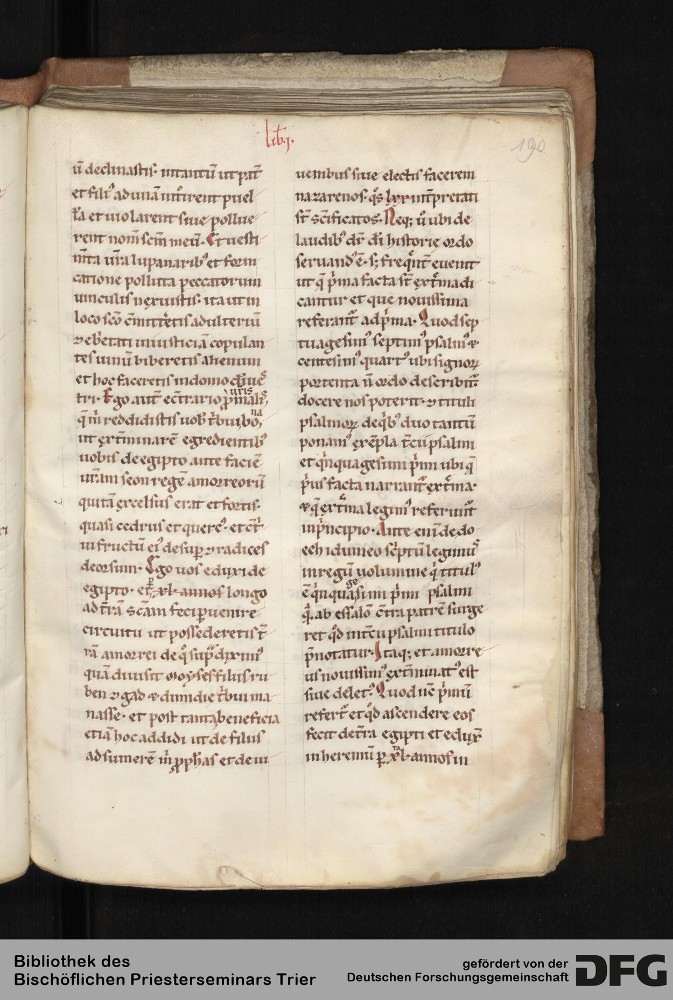 lib̄ꝫ.
190
ū declinastis. intantū ut pat̄
et fili᷒ ad unā int̄rent puel
la et uiolarent siue pollue
rent nom̄ scm̄ meū. Et uesti
m̄ta ur̄a lupanarib᷒ et forni
catione polluta peccatorum
uinculis nexuistis. ita ut in
loco sc̄o cōmitt̄etis adulteriū
et iniusticiam copulan
tes uinū biberetis alienum
et hoc faceretis in domo dī ues
tri. Ego aut̄ ec̄trario p̄ malis
q̄ m̄ reddidistis uob̄ t̄bui bona
ut ext̄minarē egredientib᷒
uobis de egipto ante faciē
ur̄am seon regē amorreorū
qui tā excelsus erat et fortis.
quasi cedrus et querc᷒. et ct̄
ui fructū ei᷒ desup̄ ⁊ radices
deorsum. Ego uos eduxi de
egipto. et p̄ xl. annos longo
ad t̄rā sc̄am feci peruenire
circuitu ut possederetis t̄
rā amorrei de q̄ sup̄ dixim᷒
quā diuisit moyses filiis ru
ben ⁊ gad ⁊ dimidie t̄bui ma
nasse. et post tanta beneficia
etiā hoc addidi ut de filiis
adsumerē m̄ pph̄as et de iu
uenibus siue electis facerem
nazarenos. q̄s lxx int̄pretati
st̄ sc̄ificatos. Neq; ū ubi de
laudib᷒ dr̄ dī historie ordo
seruand᷒ ē. s; freq̄nt̄ euenit
ut q̄ p̄ma facta st̄ ext̄ma di
cantur et que nouissima
referant̄ ad p̄ma. Quod sep
tuagesim᷒ septim᷒ psalm᷒ ⁊
centesim᷒ quart᷒ ubi signoꝝ
portenta ñ ordo describit̄
docere nos poterit. ⁊ tituli
psalmoꝝ de q̄b᷒ duo tantū
ponam᷒ exēpla t̄cii psalmi
et q̄nquagesimi p̄mi ubi q̄
p̄us facta narrant̄ ext̄ma.
⁊ q̄ ext̄ma legim᷒ referunt̄
in p̄ncipio. Ante enī de do
ech idumeo sc̄ptū legimus
in regū uolumine q̄ titul᷒
ē q̄nquagesimi p̄mi psalmi
q̄. ab essalon c̄tra patrē surge
ret qd̄ in tc̄ii psalmi titulo
p̄notatur. Itaq; et amorre
us nouissim᷒ ext̄minat᷒ est
siue delet᷒. Quod nc̄ p̄mū
refert̄ et qd̄ ascendere eos
fecit de t̄ra egipti et eduxit
in heremū p̄ xl. annos in
Bibliothek des
Bischöflichen Priesterseminars Trier
gefördert von der
Deutschen Forschungsgemeinschaft
DFG